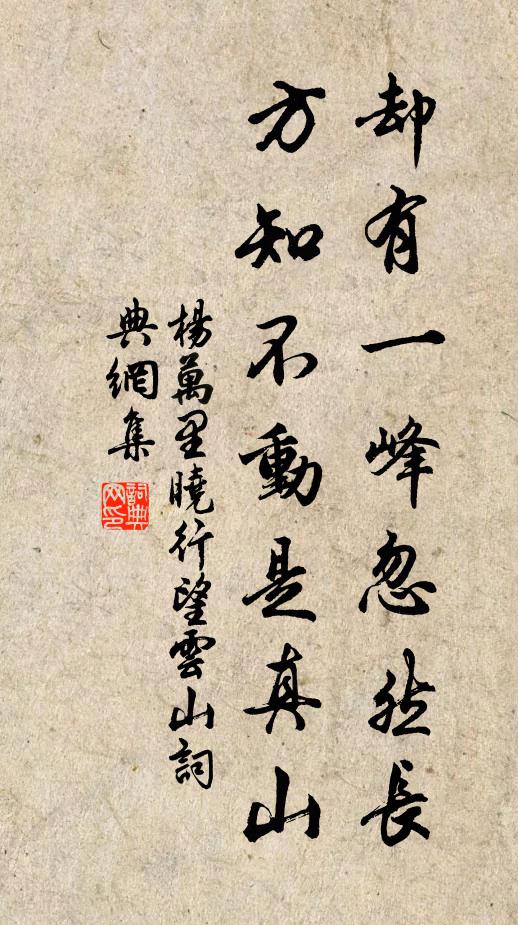 却有一峰忽然長
方知不動是真山
楊萬里曉行望雲山詞
典網集
詞典
网印